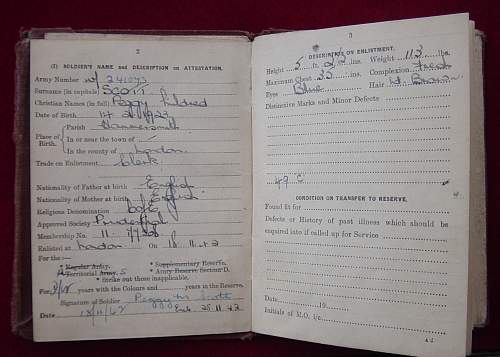 2
(I) SOLDIER'S NAME and DESCRIPTION on ATTESTATION.
Army Number W/ 241073
Surname (in capitals) SCOTT
Christian Names (in full) Peggy Mildred
Date of Birth
Place of Birth.
Parish Hammersmith
In or near the town of
In the county of London
Trade on Enlistment Clerk
Nationality of Father at birth English
Nationality of Mother at birth English
Religious Denomination C of E
Approved Society Prudential
Membership No.
Enlisted at London On
For the:—
* Regular Army. * Supplementary Reserve.
* Territorial Army. * Army Reserve Section D.
* Strike out those inapplicable.
For years with the Colours and years in the Reserve.
Signature of Soldier Peggy M Scott
Date
3
DESCRIPTION ON ENLISTMENT.
Height 5 ft. 2 ins. Weight 113 lbs.
Maximum Chest 33 ins. Complexion Fresh
Eyes Blue Hair Brown
Distinctive Marks and Minor Defects
CONDITION ON TRANSFER TO RESERVE.
Found fit for
Defects or History of past illness which should be
enquired into if called up for Service
Date 19
Initials of M.O. i/c